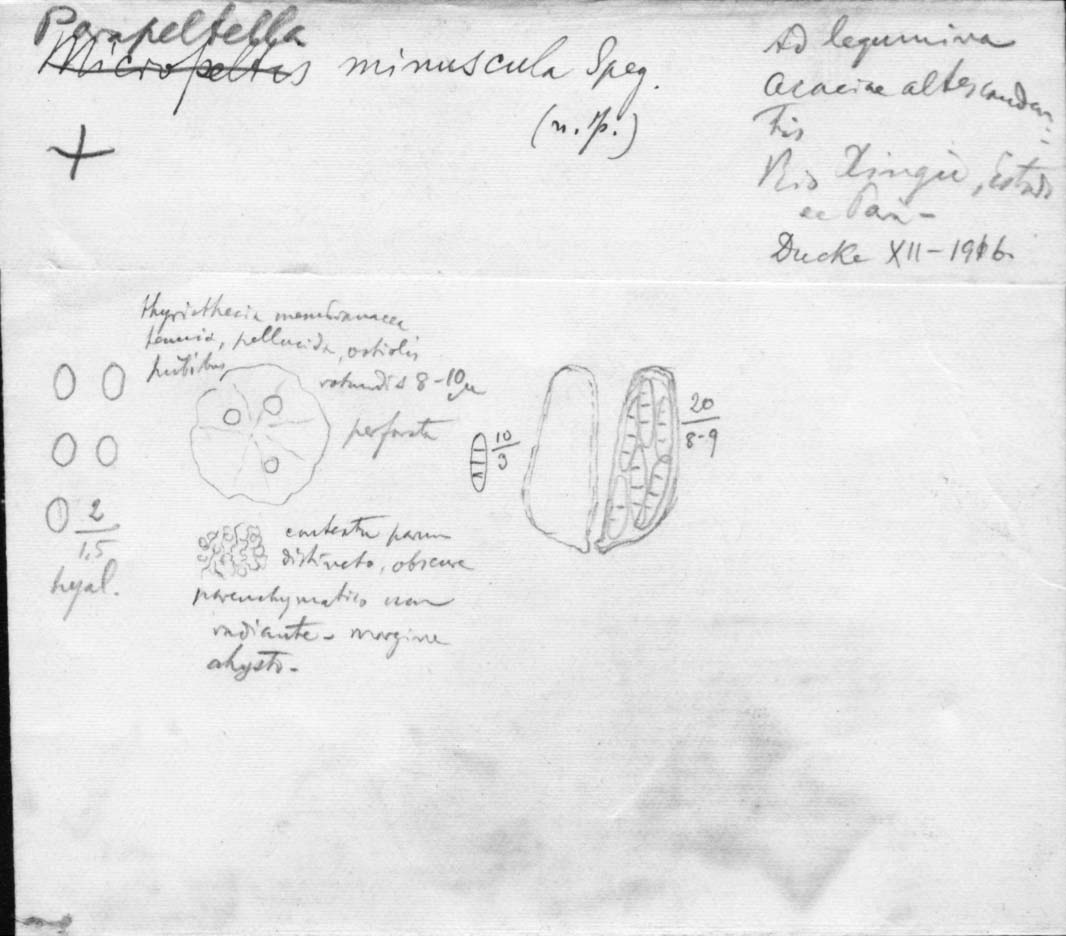 Parapeltella
Micropeltis minuscula Speg.
(n. sp.)
Ad legumina
Acaciae altescanden-
tis
Rio Xingú, Estado
de Pará -
Ducke XII - 1916.
thyriothecia membranacea
tenuia, pellucida, ostiolis
rotundis 8-10 µ
perforata
contextu parum
distincto, obscure
parenchymatico non
radiante - margine
ahysto -
2
1,5
hyal.
10
3
20
8-9